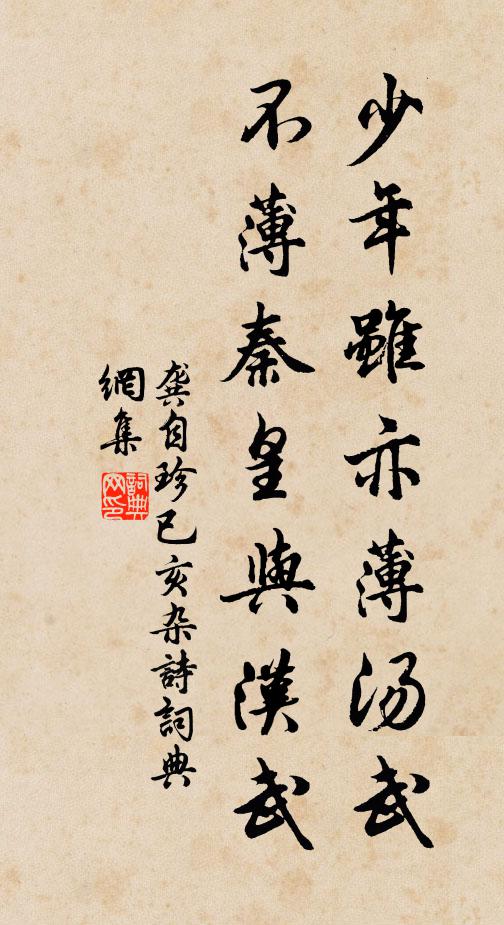 少年雖亦薄汤武
不薄秦皇與漢武
龔自珍己亥杂詩詞典
網集
詞典
网印